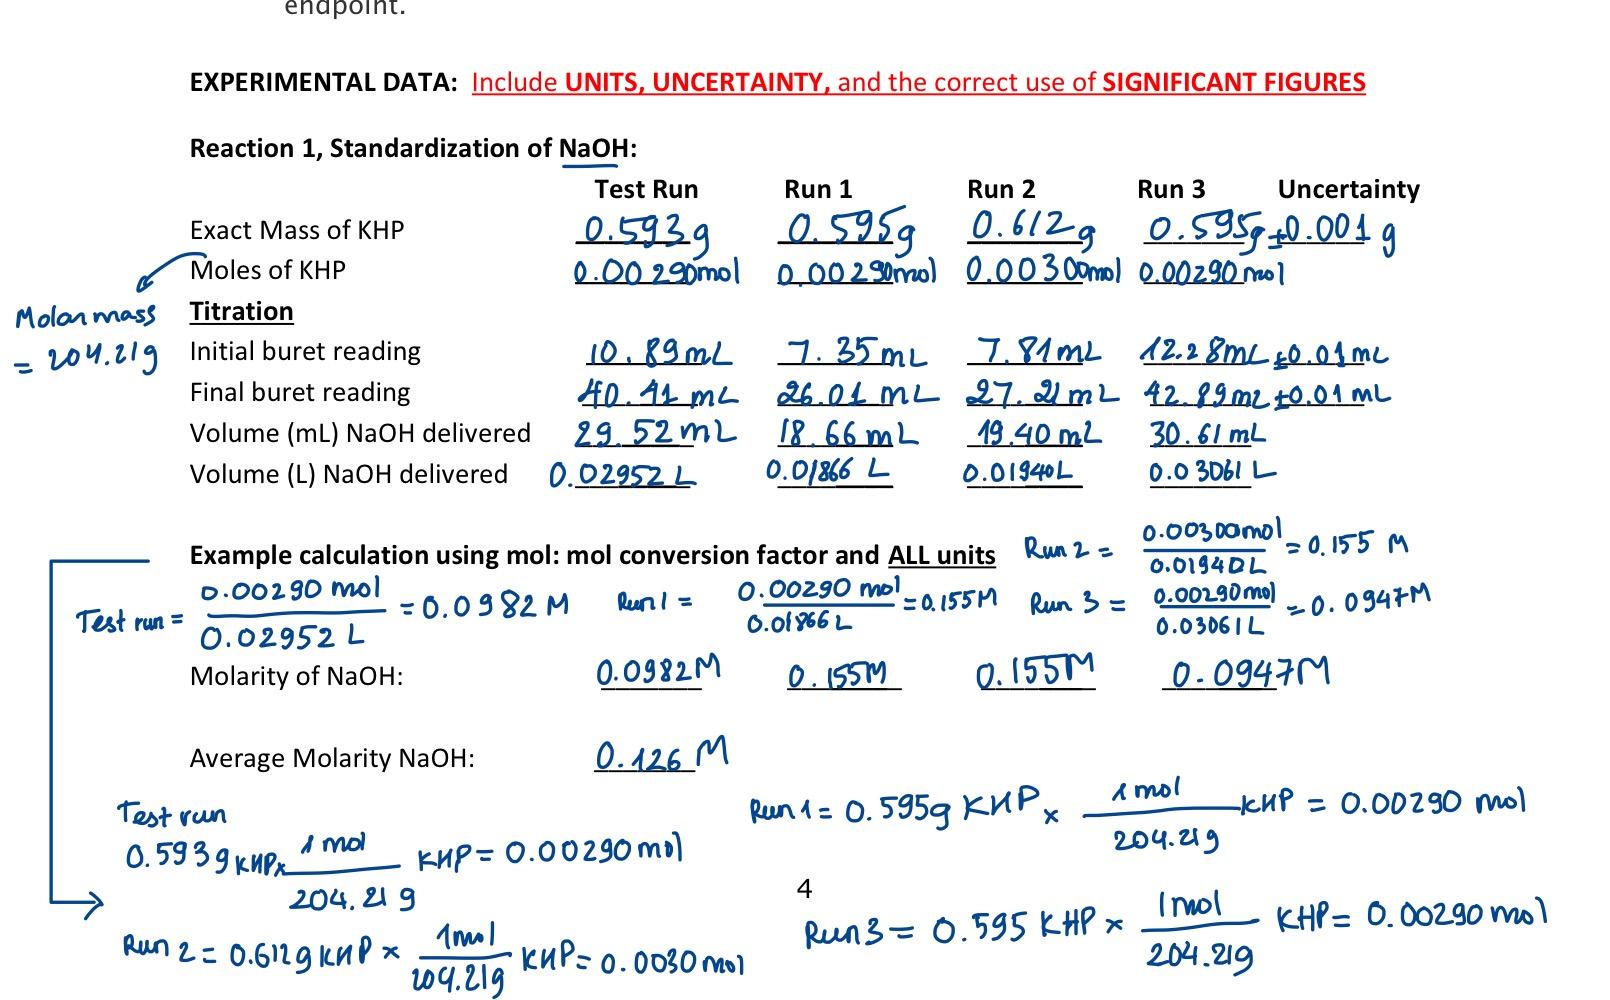 endpoint.
EXPERIMENTAL DATA: Include UNITS, UNCERTAINTY, and the correct use of SIGNIFICANT FIGURES
Reaction 1, Standardization of NaOH:
Test Run Run 1 Run 2 Run 3 Uncertainty
Exact Mass of KHP 0.593g 0.595g 0.612g 0.595g ±0.001 g
Moles of KHP 0.00290mol 0.00290mol 0.00300mol 0.00290mol
Molar mass = 204.21g
Titration
Initial buret reading 10.89mL 7.35mL 7.81mL 12.28mL ±0.01mL
Final buret reading 40.41mL 26.01mL 27.21mL 42.89mL ±0.01mL
Volume (mL) NaOH delivered 29.52mL 18.66mL 19.40mL 30.61mL
Volume (L) NaOH delivered 0.02952L 0.01866 L 0.01940L 0.03061L
Example calculation using mol: mol conversion factor and ALL units
Run 2 = 0.00300mol / 0.01940L = 0.155 M
Test run = 0.00290 mol / 0.02952 L = 0.0982 M
Run 1 = 0.00290 mol / 0.01866L = 0.155M
Run 3 = 0.00290mol / 0.03061L = 0.0947M
Molarity of NaOH: 0.0982M 0.155M 0.155M 0.0947M
Average Molarity NaOH: 0.126 M
Test run
0.593g KHP x 1 mol / 204.21 g KHP = 0.00290mol
Run 1 = 0.595g KHP x 1 mol / 204.21g KHP = 0.00290 mol
4
Run 2 = 0.612g KHP x 1mol / 204.21g KHP = 0.0030 mol
Run 3 = 0.595 KHP x 1mol / 204.21g KHP = 0.00290mol